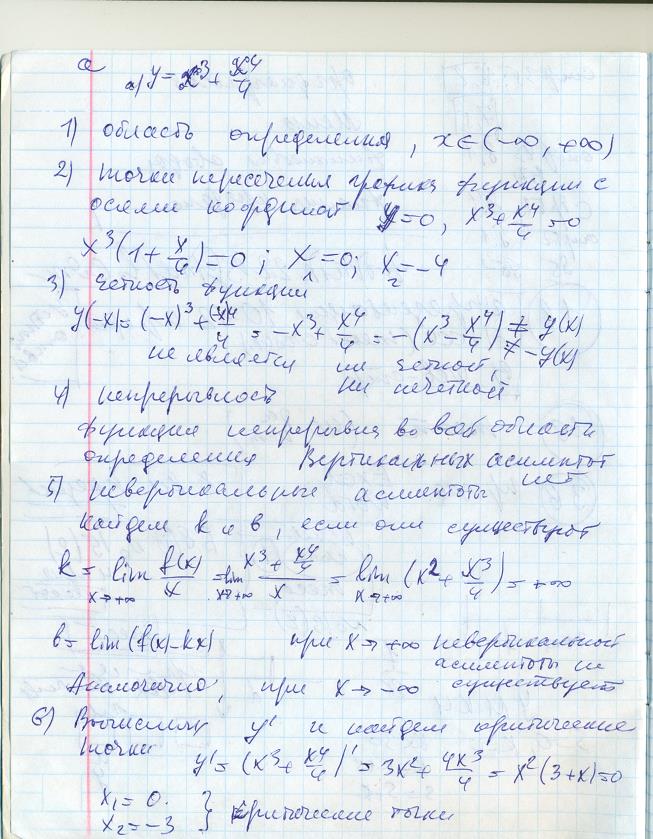 а) y = x³ + x⁴/4
1) область определения, x ∈ (-∞, +∞)
2) точки пересечения графика функции с
осями координат y = 0, x³ + x⁴/4 = 0
x³(1 + x/4) = 0; x₁ = 0; x₂ = -4
3) четность функции
y(-x) = (-x)³ + (-x)⁴/4 = -x³ + x⁴/4 = -(x³ - x⁴/4) ≠ y(x) ≠ -y(x)
не является ни четной,
ни нечетной
4) непрерывность
функция непрерывна во всей области
определения Вертикальных асимптот
нет
5) невертикальные асимптоты
найдем k и b, если они существуют
k = lim x→+∞ f(x)/x = lim x→+∞ (x³ + x⁴/4)/x = lim x→+∞ (x² + x³/4) = +∞
b = lim (f(x) - kx) при x→+∞ невертикальной
асимптоты не
существует
Аналогично, при x→ -∞
6) Вычислим y' и найдем критические
точки
y' = (x³ + x⁴/4)' = 3x² + 4x³/4 = x²(3 + x) = 0
x₁ = 0.
x₂ = -3 } критические точки